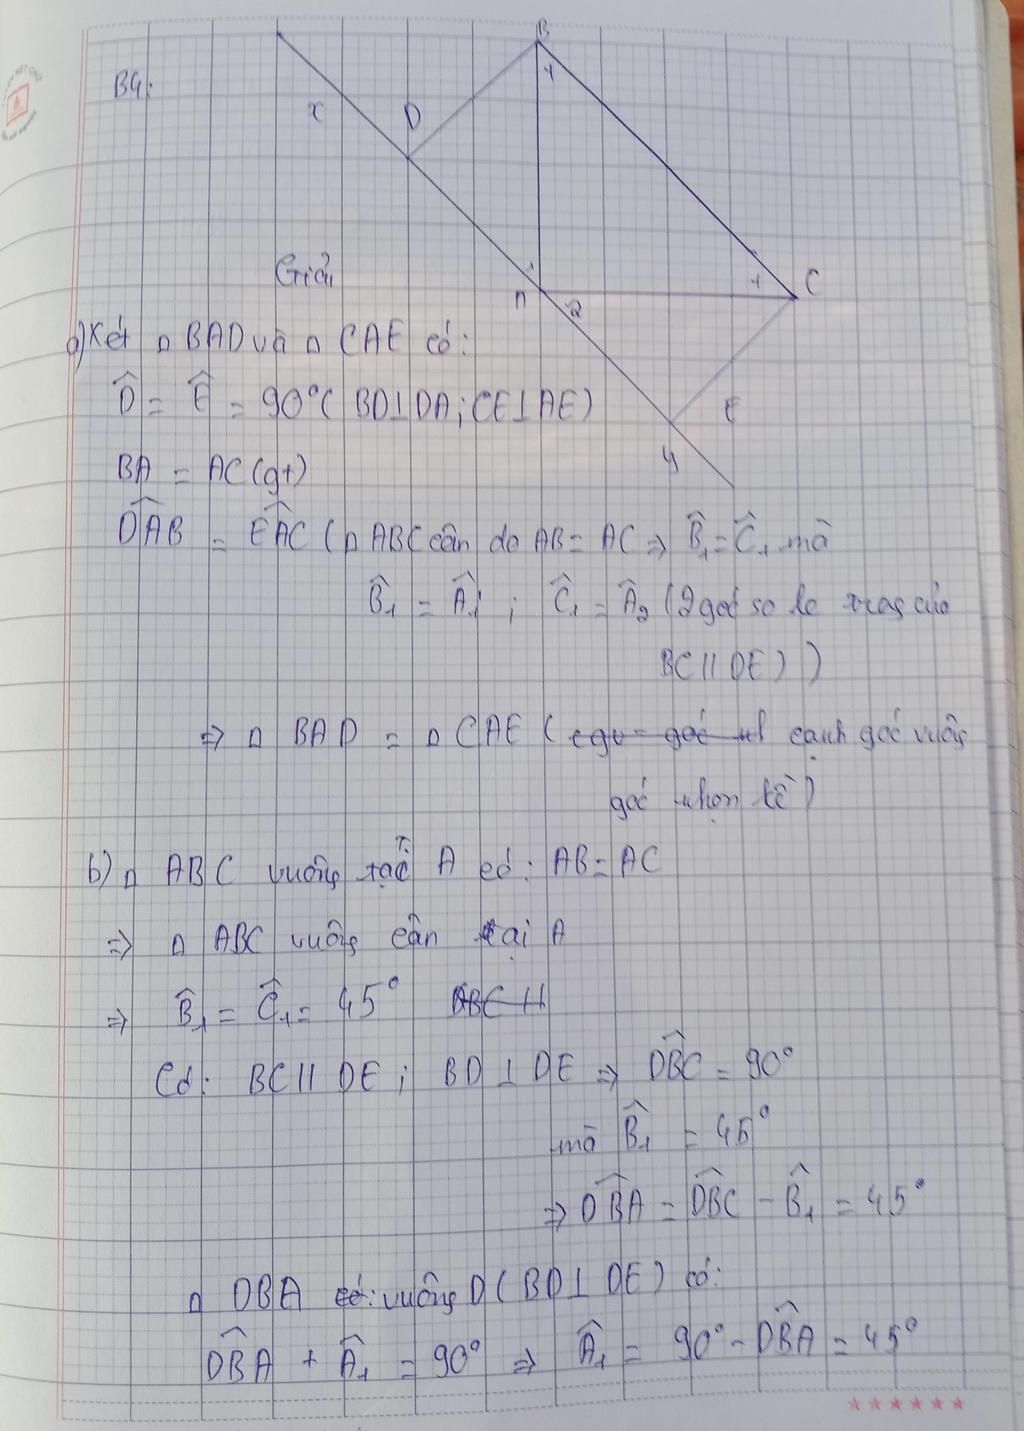 B4:
B
1
x
D
Giải
1
A
2
1
C
a) Xét △ BAD và △ CAE có:
D̂ = Ê = 90° ( BD⊥DA ; CE⊥AE )
E
y
BA = AC (gt)
D̂AB = ÊAC ( △ ABC cân do AB = AC ⇒ B̂₁ = Ĉ₁ mà
B̂₁ = Â₁ ; Ĉ₁ = Â₂ ( 2 góc so le trong của
BC // DE ) )
⇒ △ BAD = △ CAE ( cạnh góc vuông
góc nhọn kề )
b) △ ABC vuông tại A có: AB = AC
⇒ △ ABC vuông cân tại A
⇒ B̂₁ = Ĉ₁ = 45° ABC //
Có: BC // DE ; BD ⊥ DE ⇒ DB̂C = 90°
mà B̂₁ = 45°
⇒ DB̂A = DB̂C - B̂₁ = 45°
△ DBA có: vuông D ( BD ⊥ DE ) có:
DB̂A + Â₁ = 90° ⇒ Â₁ = 90° - DB̂A = 45°